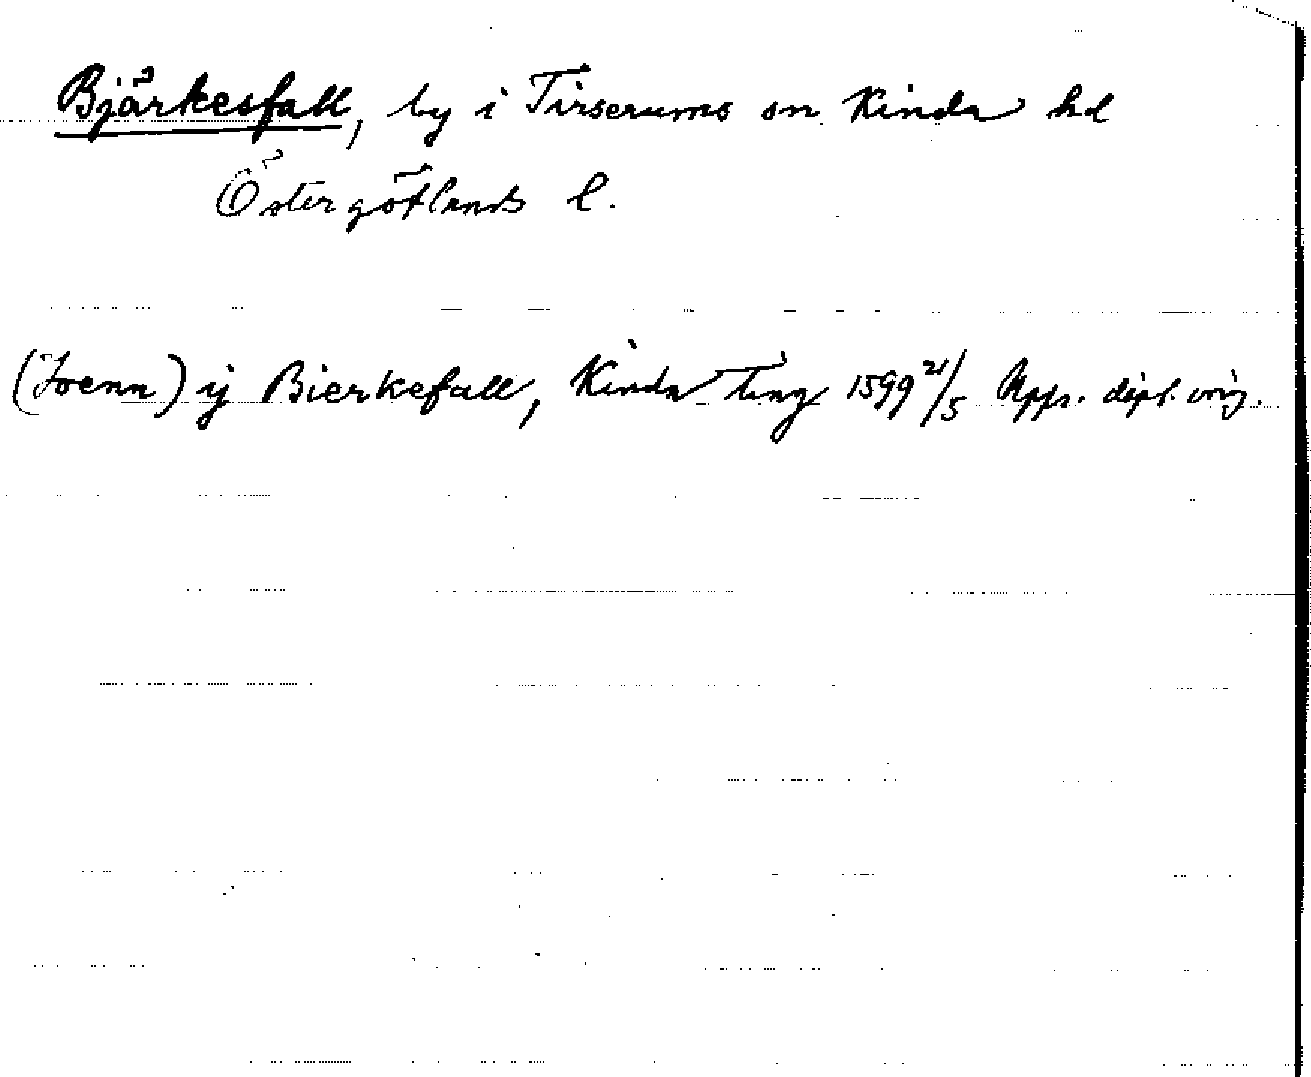 Bjärkesfall, by i Tirserums sn Kinda hd
Östergötlands l.
(Joenn) ij Bierkefall, Kinda ting 1599 21/5 Upps. dipl. orig.